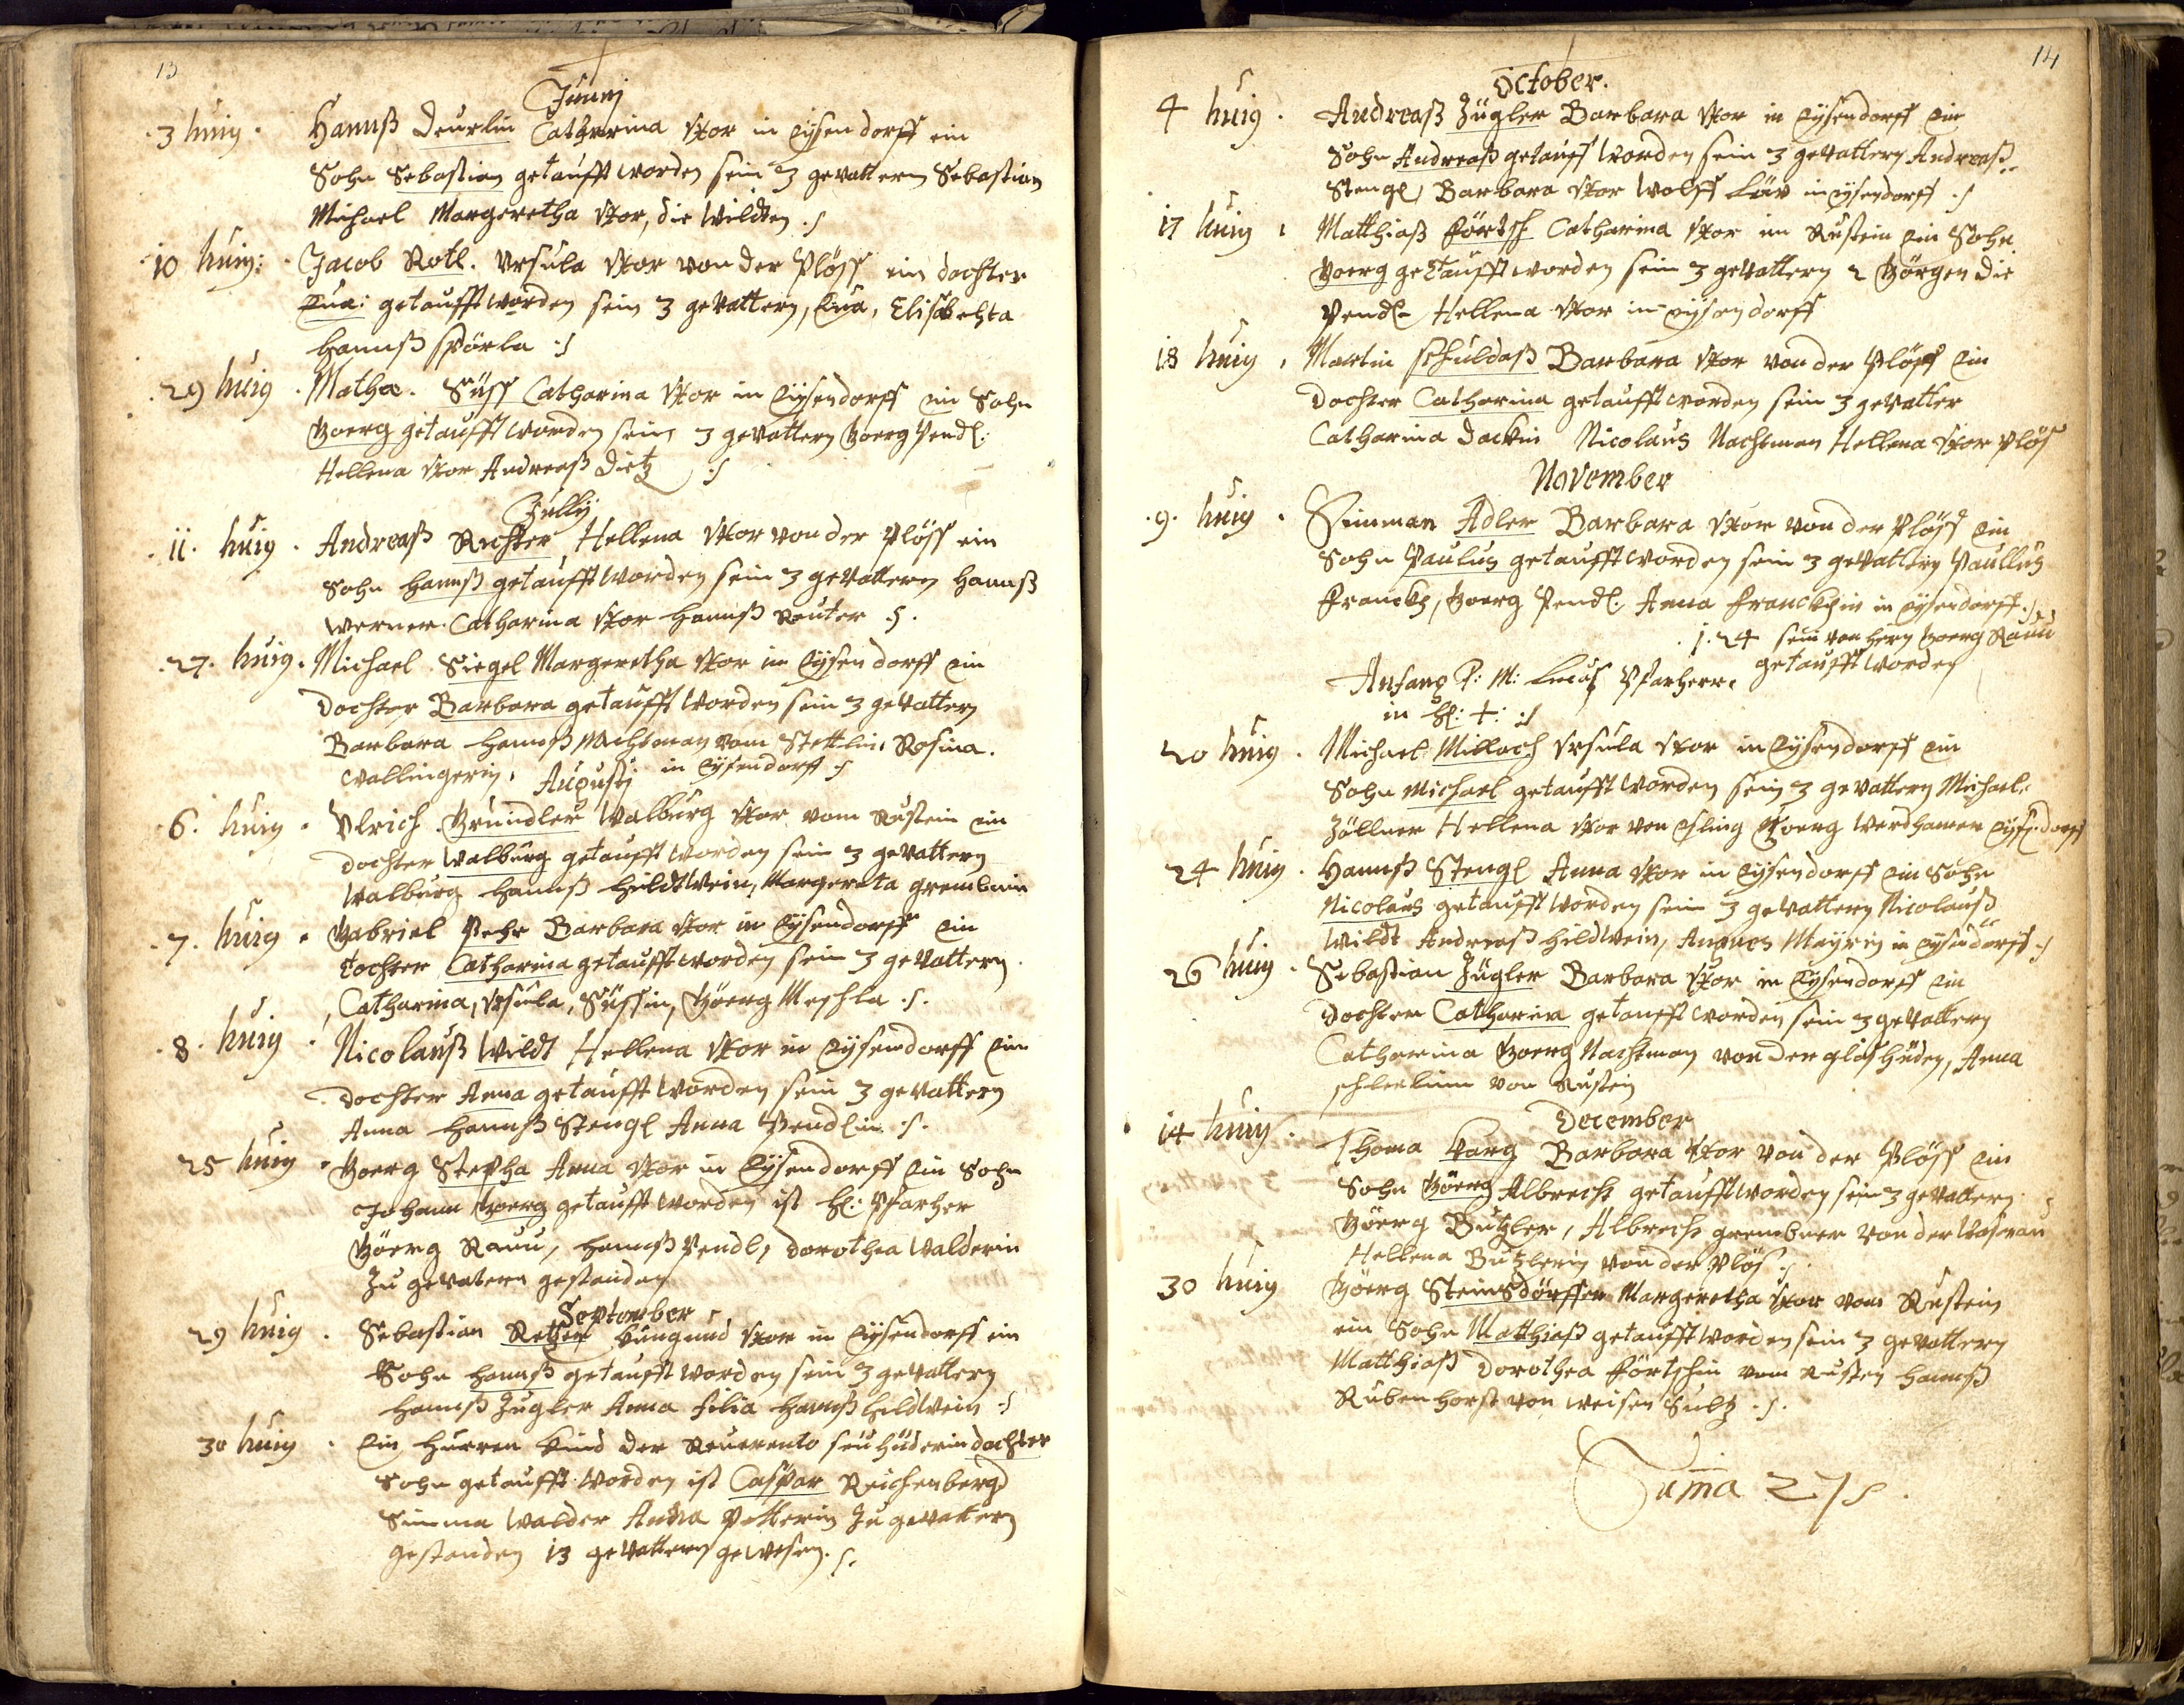 13
Junij
3 huig. Hannß Deuerlin Catharina Vxor in Eysendorff ein
Sohn Sebastian getaufft worden sein 3 gevattern Sebastian
Michael Margeretha Vxor, die Wildten
10 huig: Jacob Rotl. Vrsula Vxor von der Plöss ein dochter
Eua: getaufft worden sein 3 gevattern, Eua, Elisabehta
Hannß
29 huig. Mathæ. Süss Catharina Vxor in Eysendorff ein Sohn
Goerg getaufft worden sein 3 gevattern Goerg Pendl:
Hellena Vxor Andreaß Dietz
Jullij
11. huig. Andreaß Richter Hellena Vxor von der Plöss ein
Sohn Hannß getaufft worden sein 3 gevattern Hannß
Werner. Catharina Vxor Hannß Reuter
27. huig. Michael Siegel Margeretha Vxor in Eysendorff ein
Dochter Barbara getaufft worden sein 3 gevattern
Barbara Hannß Nachtman vom Stettlin, Rosina.
Wallingerin, in Eysendorff
Augustj
6. huig. Vlrich Gründler Walburg Vxor vom Rustein ein
Dochter Walburg getaufft worden sein 3 gevattern
Walburg Hannß Hildtwein, Margereta
7. huig. Gabriel Pehr Barbara Vxor in Eysendorff ein
tochter Catharina getaufft worden sein 3 gevattern
Catharina, Vrsula, Süssin, Göerg Meschla
8. huig. Nicolauß Wildt Hellena Vxor in Eysendorff ein
dochter Anna getaufft worden sein 3 gevattern
Anna Hannß Stengl Anna Pendlin
25 huig. Goerg Stepha Anna Vxor in Eysendorff ein Sohn
Johann Goerg getaufft worden ist H: Pfarher
Göerg Rauu, Hannß Pendl, Dorothea Walderin
Zu gevatern gestanden
September
29 huig. Sebastian Retzer Kungund Vxor in Eysendorff ein
Sohn Hannß getaufft worden sein 3 gevattern
Hannß Zugler Anna filia Hannß Hildwein
30 huig. Ein Hurren Kind der Reuerento dochter
Sohn getaufft worden ist Caspar Reichenberg
Simma Walder Anna Petterin Zu gevattern
gestanden 13 gevattern gewesen.
14
October.
4 huig. Andreaß Zügler Barbara Vxor in Eysendorff ein
Sohn Andreaß getaufft worden sein 3 gevattern Andreaß
Stengl, Barbara Vxor Wolff in Eysendorff
17 huig, Matthiaß Förtsch Catharina Vxor im Rustein ein Sohn
Goerg getaufft worden sein 3 gevattern 2 Görgen die
Pendl Hellena Vxor in Eysendorff
18 huig, Martin Schuldaß Barbara Vxor von der Plöss ein
Dochter Catharina getaufft worden sein 3 gevatter
Catharina Dackin Nicolaus Nachtman Hellena Vxor Plös
November
9. huig. Simman Adler Barbara Vxor von der Plöss ein
Sohn Paulus getaufft worden sein 3 gevattern Paullus
Franckh, Goerg Pendl. Anna Franckhin in Eysendorff
1. 24 sein von Hern Goerg Rauu
getaufft worden
Anfang P: M: Lucas Pfarherr
in H: +:
20 huig. Michael Millach Vrsula Vxor in Eysendorff ein
Sohn Michael getaufft worden sein 3 gevattern Michael
Zöllner Hellena Vxor von Goerg Werdhamer Eyss:dorff
24 huig. Hannß Stengl Anna Vxor in Eysendorff ein Sohn
Nicolaus getaufft worden sein 3 gevattern Nicolauß
Wildt Andreaß Hildwein, Angnes Mayrin in Eysendorff
26 huig. Sebastian Zügler Barbara Vxor in Eysendorff ein
Dochter Catharina getaufft worden sein 3 gevattern
Catharina Goerg Nachtman von der glashüden, Anna
von Rustein
December
14 huig. Thoma Karg Barbara Vxor von der Plöss ein
Sohn Göerg Albrecht getaufft worden sein 3 gevattern
Göerg Butzler, Albrecht von der
Hellena Butzlerin von der Plös
30 huig Göerg Steinsdörffer Margeretha Vxor vom Rustein
ein Sohn Matthiaß getaufft worden sein 3 gevattern
Matthiaß Dorothea Förtschin vom Rustein Hannß
Rubenhorst von Weisen Sultz
Suma 27